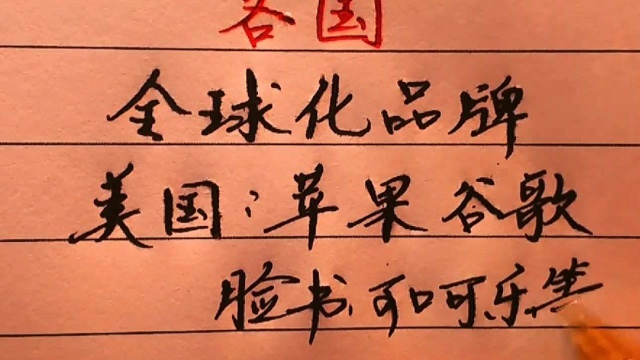 各国
全球化品牌
美国:苹果谷歌
脸书、可口可乐等